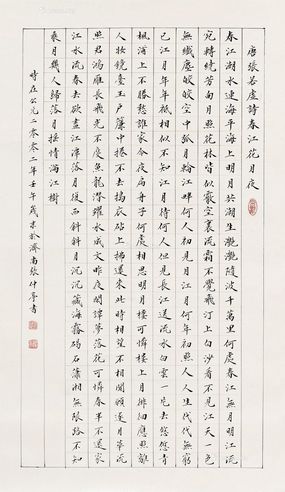 唐張若虛詩春江花月夜
春江潮水連海平海上明月共潮生灧灧隨波千萬里何處春江無月明江流
宛轉繞芳甸月照花林皆似霰空裏流霜不覺飛汀上白沙看不見江天一色
無纖塵皎皎空中孤月輪江畔何人初見月江月何年初照人人生代代無窮
已江月年年祇相似不知江月待何人但見長江送流水白雲一片去悠悠青
楓浦上不勝愁誰家今夜扁舟子何處相思明月樓可憐樓上月徘徊應照離
人妝鏡臺玉戶簾中捲不去搗衣砧上拂還來此時相望不相聞願逐月華流
照君鴻雁長飛光不度魚龍潛躍水成文昨夜閒潭夢落花可憐春半不還家
江水流春去欲盡江潭落月復西斜斜月沉沉藏海霧碣石瀟湘無限路不知
乘月幾人歸落月搖情滿江樹
時在公元二零零二年壬午歲末於濟南張仲亭書